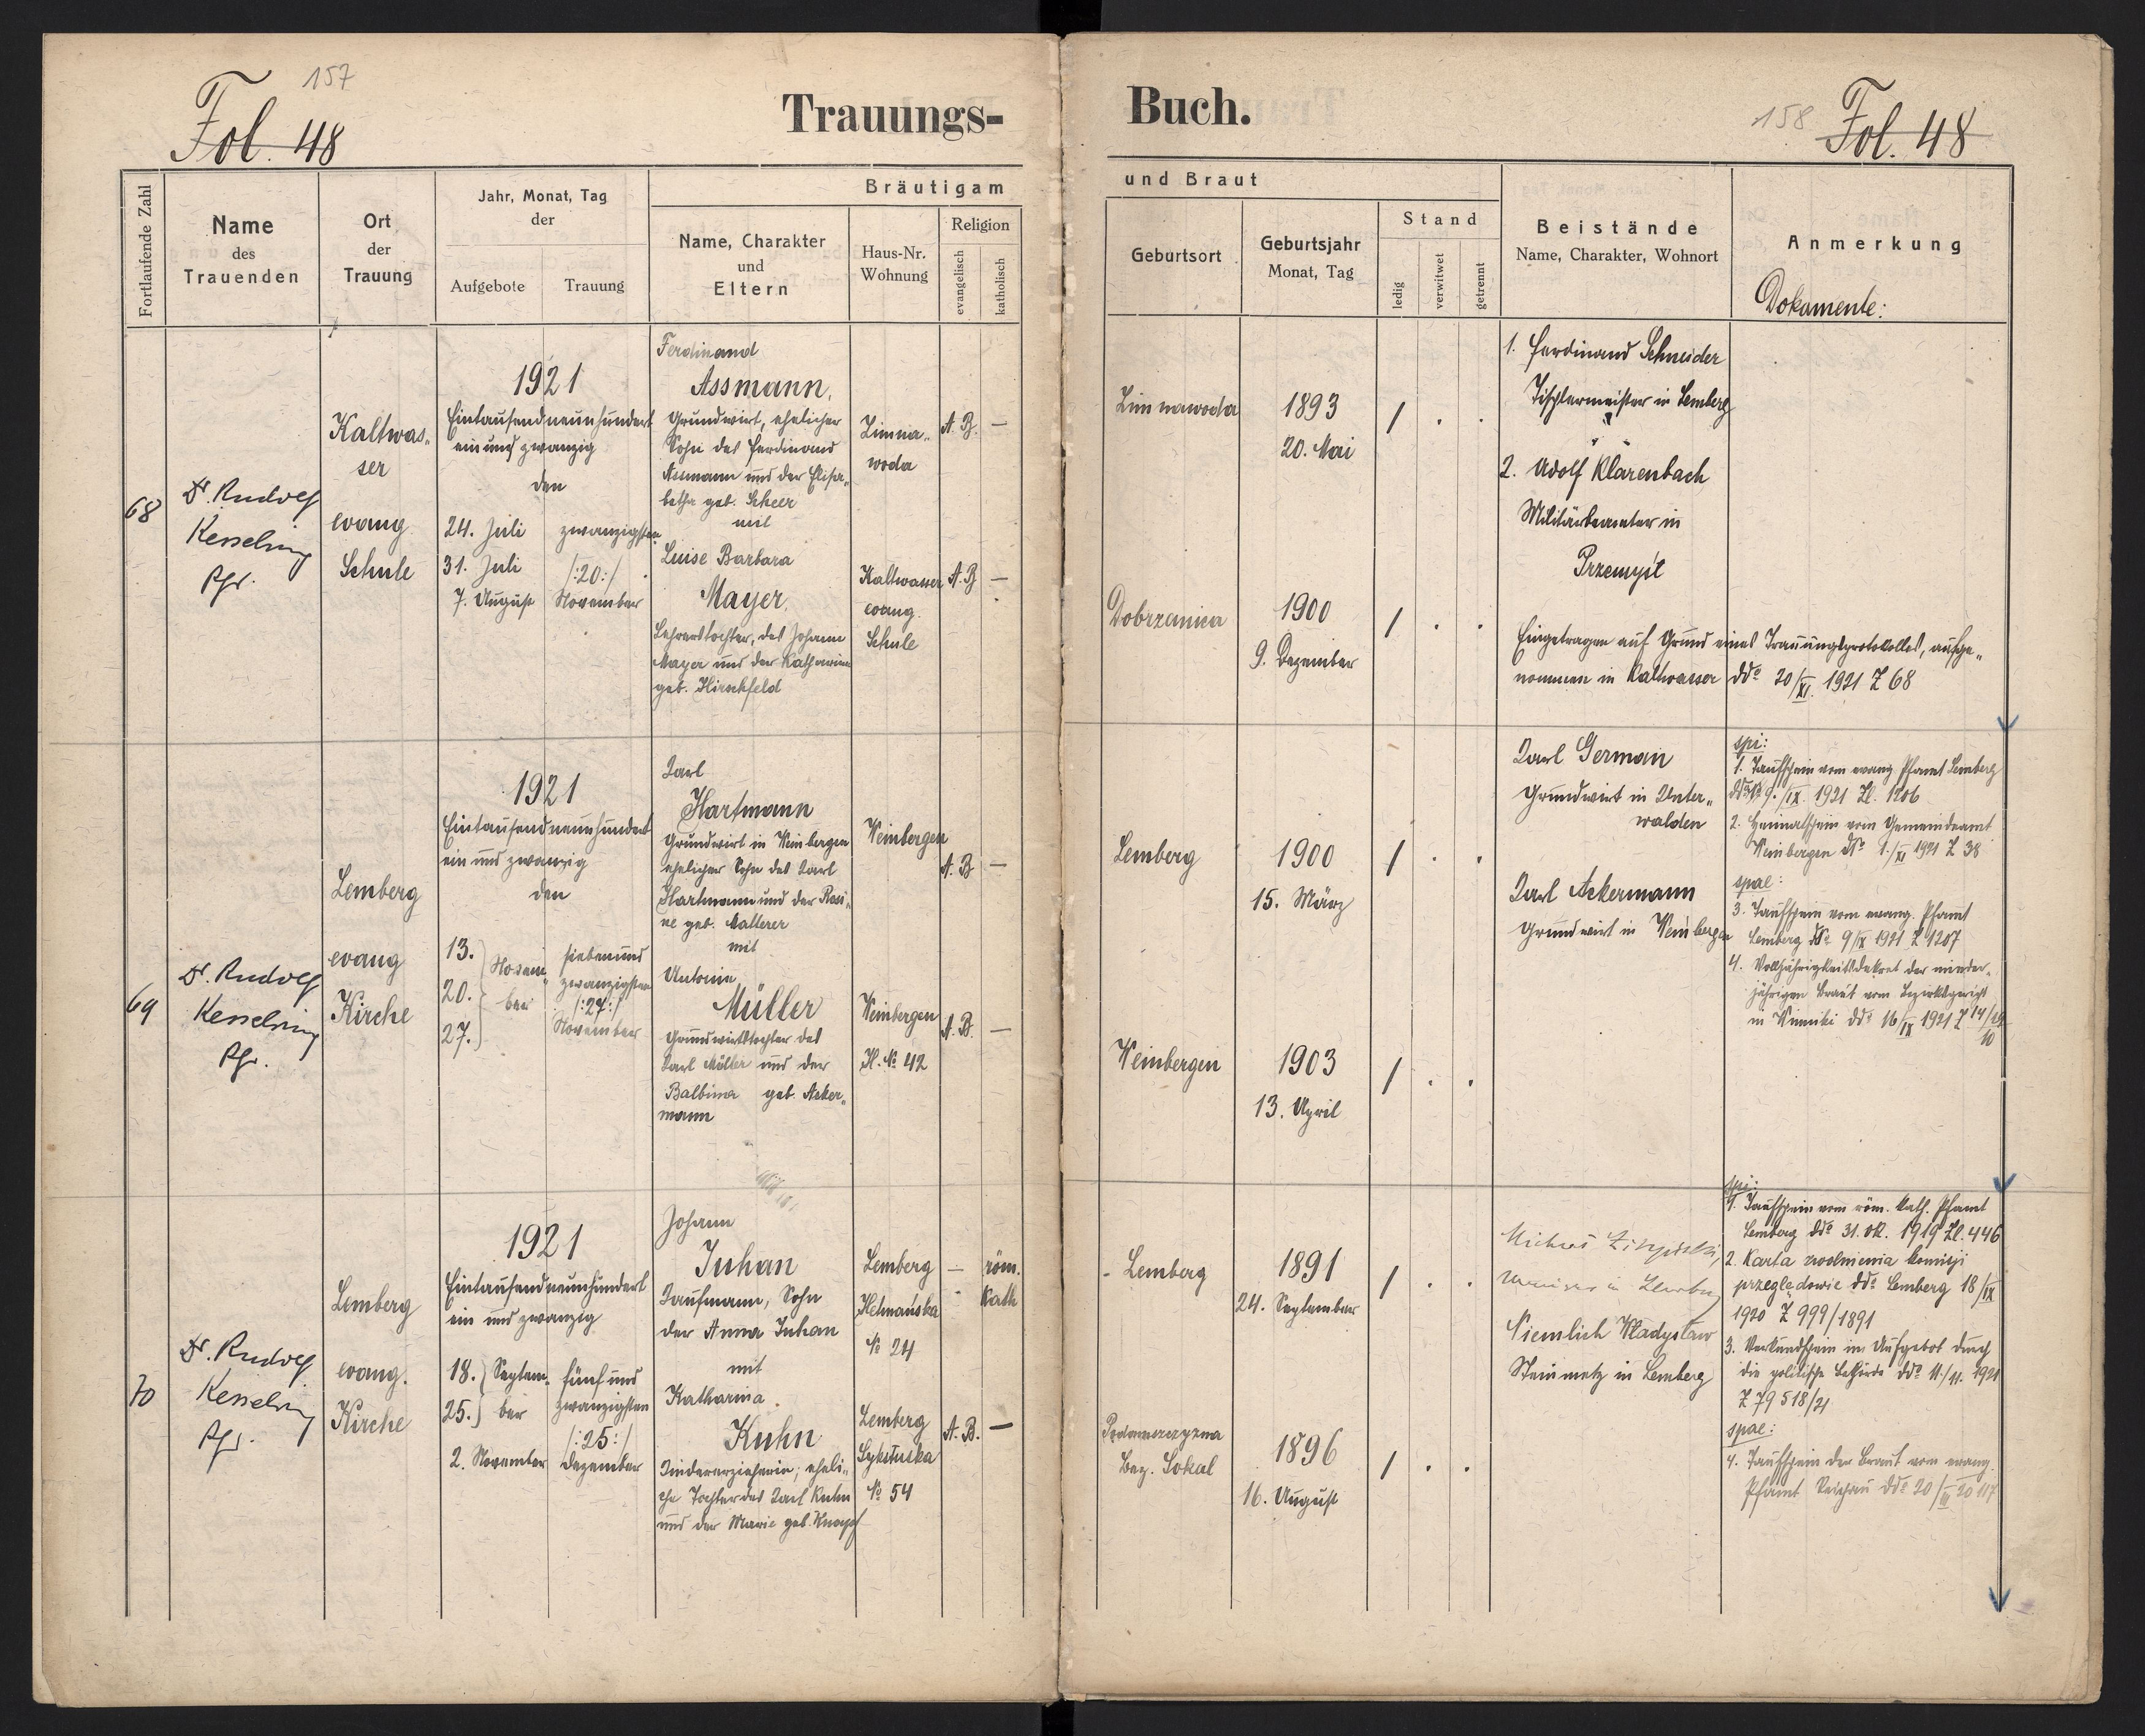 157
Fol. 48
Trauungs-
Fortlaufende Zahl
Name
des
Trauenden
Ort
der
Trauung
Jahr, Monat, Tag
der
Aufgebote
Trauung
Bräutigam
Name, Charakter
und
Eltern
Haus-Nr.
Wohnung
Religion
evangelisch
katholisch
68
Dr. Rudolf
Kesselring
Pfr.
Kaltwas-
ser
evang
Schule
1921
Eintausendneunhundert
ein und zwanzig
den
24. Juli
31. Juli
7. August
zwanzigsten
/:20:/
November
Ferdinand
Assmann,
Grundwirt, ehelicher
Sohn des Ferdinand
Assmann und der Elisa-
betha geb. Scheer
mit
Luise Barbara
Mayer,
Lehrerstochter, des Johann
Mayer und der Katharina
geb. Hirschfeld
Zimna-
woda
A. B. —
Kaltwasser
evang.
Schule
A. B —
69
Dr. Rudolf
Kesselring
Pfr.
Lemberg
evang
Kirche
1921
Eintausendneunhundert
ein und zwanzig
den
13.
20.
27.
Novem-
ber
siebenund
zwanzigsten
/:27:/
November
Karl
Hartmann
Grundwirt in Weinbergen
ehelicher Sohn des Karl
Hartmann und der Rosi-
ne geb. Matterer
mit
Antonie
Müller
Grundwirtstochter des
Karl Müller und der
Balbina geb. Acker-
mann
Weinbergen
A. B —
Weinbergen
H. No 42
A. B. —
70
Dr. Rudolf
Kesselring
Pfr.
Lemberg
evang.
Kirche
1921
Eintausendneunhundert
ein und zwanzig
18.
25.
Septem-
ber
2. November
fünf und
zwanzigsten
/:25:/
Dezember
Johann
Juhan
Kaufmann, Sohn
der Anna Juhan
mit
Katharina
Kuhn
Kindererzieherin, eheli-
che Tochter des Karl Kuhn
und der Marie geb. Knapf
Lemberg
Hetmańska
No 24
— röm.
kath
Lemberg
Sykstuska
No 54
A. B. —
158
Fol. 48
Buch.
und Braut
Geburtsort
Geburtsjahr
Monat, Tag
Stand
ledig
verwitwet
getrennt
Beistände
Name, Charakter, Wohnort
Anmerkung
Dokumente:
Zimnawoda
1893
20. Mai
1. Ferdinand Schneider
Tischlermeister in Lemberg
2. Adolf Klarenbach
Militärbeamter in
Przemyśl
Dobrzanica
1900
9. Dezember
Eingetragen auf Grund eines Trauungsprotokolles, aufge-
nommen in Kaltwasser ddo 20/XI. 1921 Z 68
Lemberg
1900
15. März
Weinbergen
1903
13. April
Karl German
Grundwirt in Unter-
walden
Karl Ackermann
Grundwirt in Weinbergen
spi:
1. Taufschein vom evang Pfamt Lemberg
9./IX. 1921 Zl. 1206
2. Heimatschein vom Gemeindeamt
Weinbergen ddo 1./XI 1921 Z 38
spae:
3. Taufschein vom evang. Pfamt
Lemberg ddo 9/IX 1921 Z 1207
4. Volljährigkeitsdekret der minder-
jährigen Braut vom Bezirksgericht
in Winniki ddo 16/IX 1921 Z
Lemberg
1891
24. September
Bez. Sokal
1896
16. August
in Lemberg
Niemlich Władysław
Steinmetz in Lemberg
spi:
1. Taufschein vom röm. kath. Pfamt
Lemberg ddo 31. Okt. 1919 Zl. 446
2. Karta zwolnienia komisji
przeglądowie ddo Lemberg 18/IX
1920 Z 999/1891
3. Verkündschein im Aufgebot durch
die politische Behörde ddo 11./11. 1921
Z 79518/21
spae:
4. Taufschein der Braut vom evang.
Pfamt